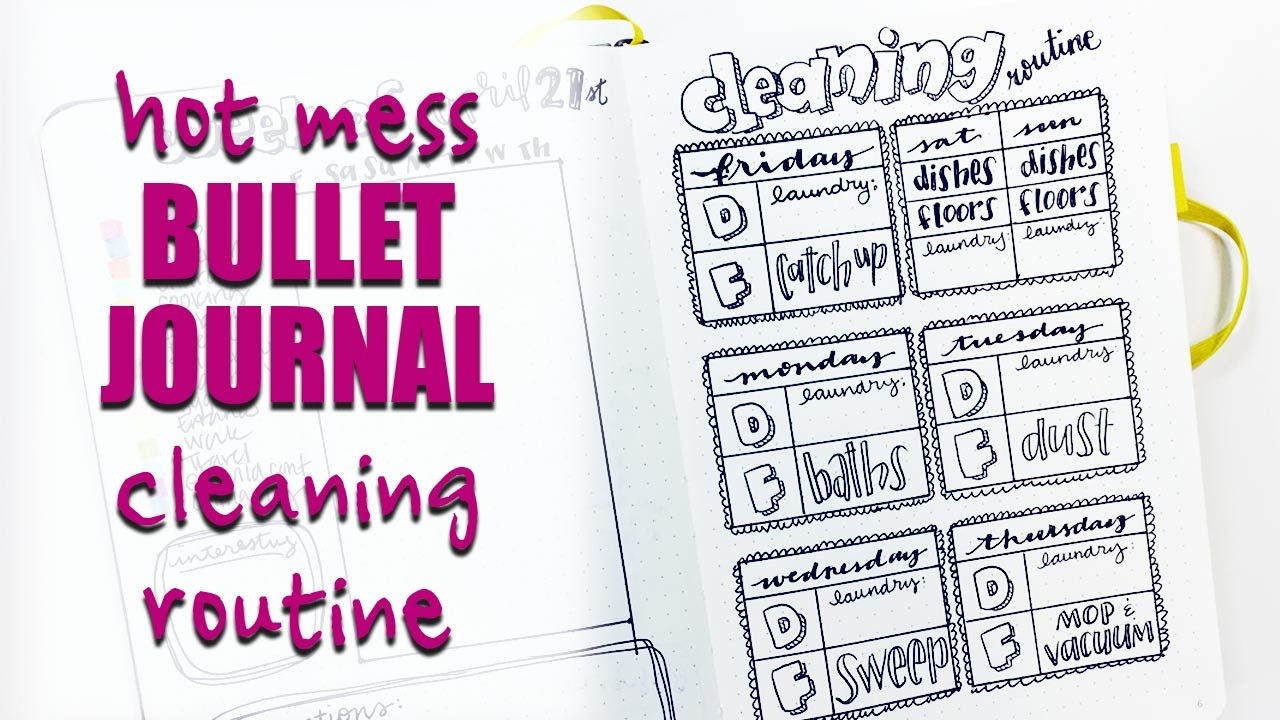 hot mess
BULLET
JOURNAL
cleaning
routine
21st
Sa Su M W Th
cooking
work
travel
interesting
cleaning routine
friday
D
laundry:
F
catch up
sat
sun
dishes
dishes
floors
floors
laundry
laundry:
monday
D
laundry:
F
baths
tuesday
D
laundry:
F
dust
wednesday
D
laundry:
F
sweep
thursday
D
laundry:
F
MOP &
VACUUM
6